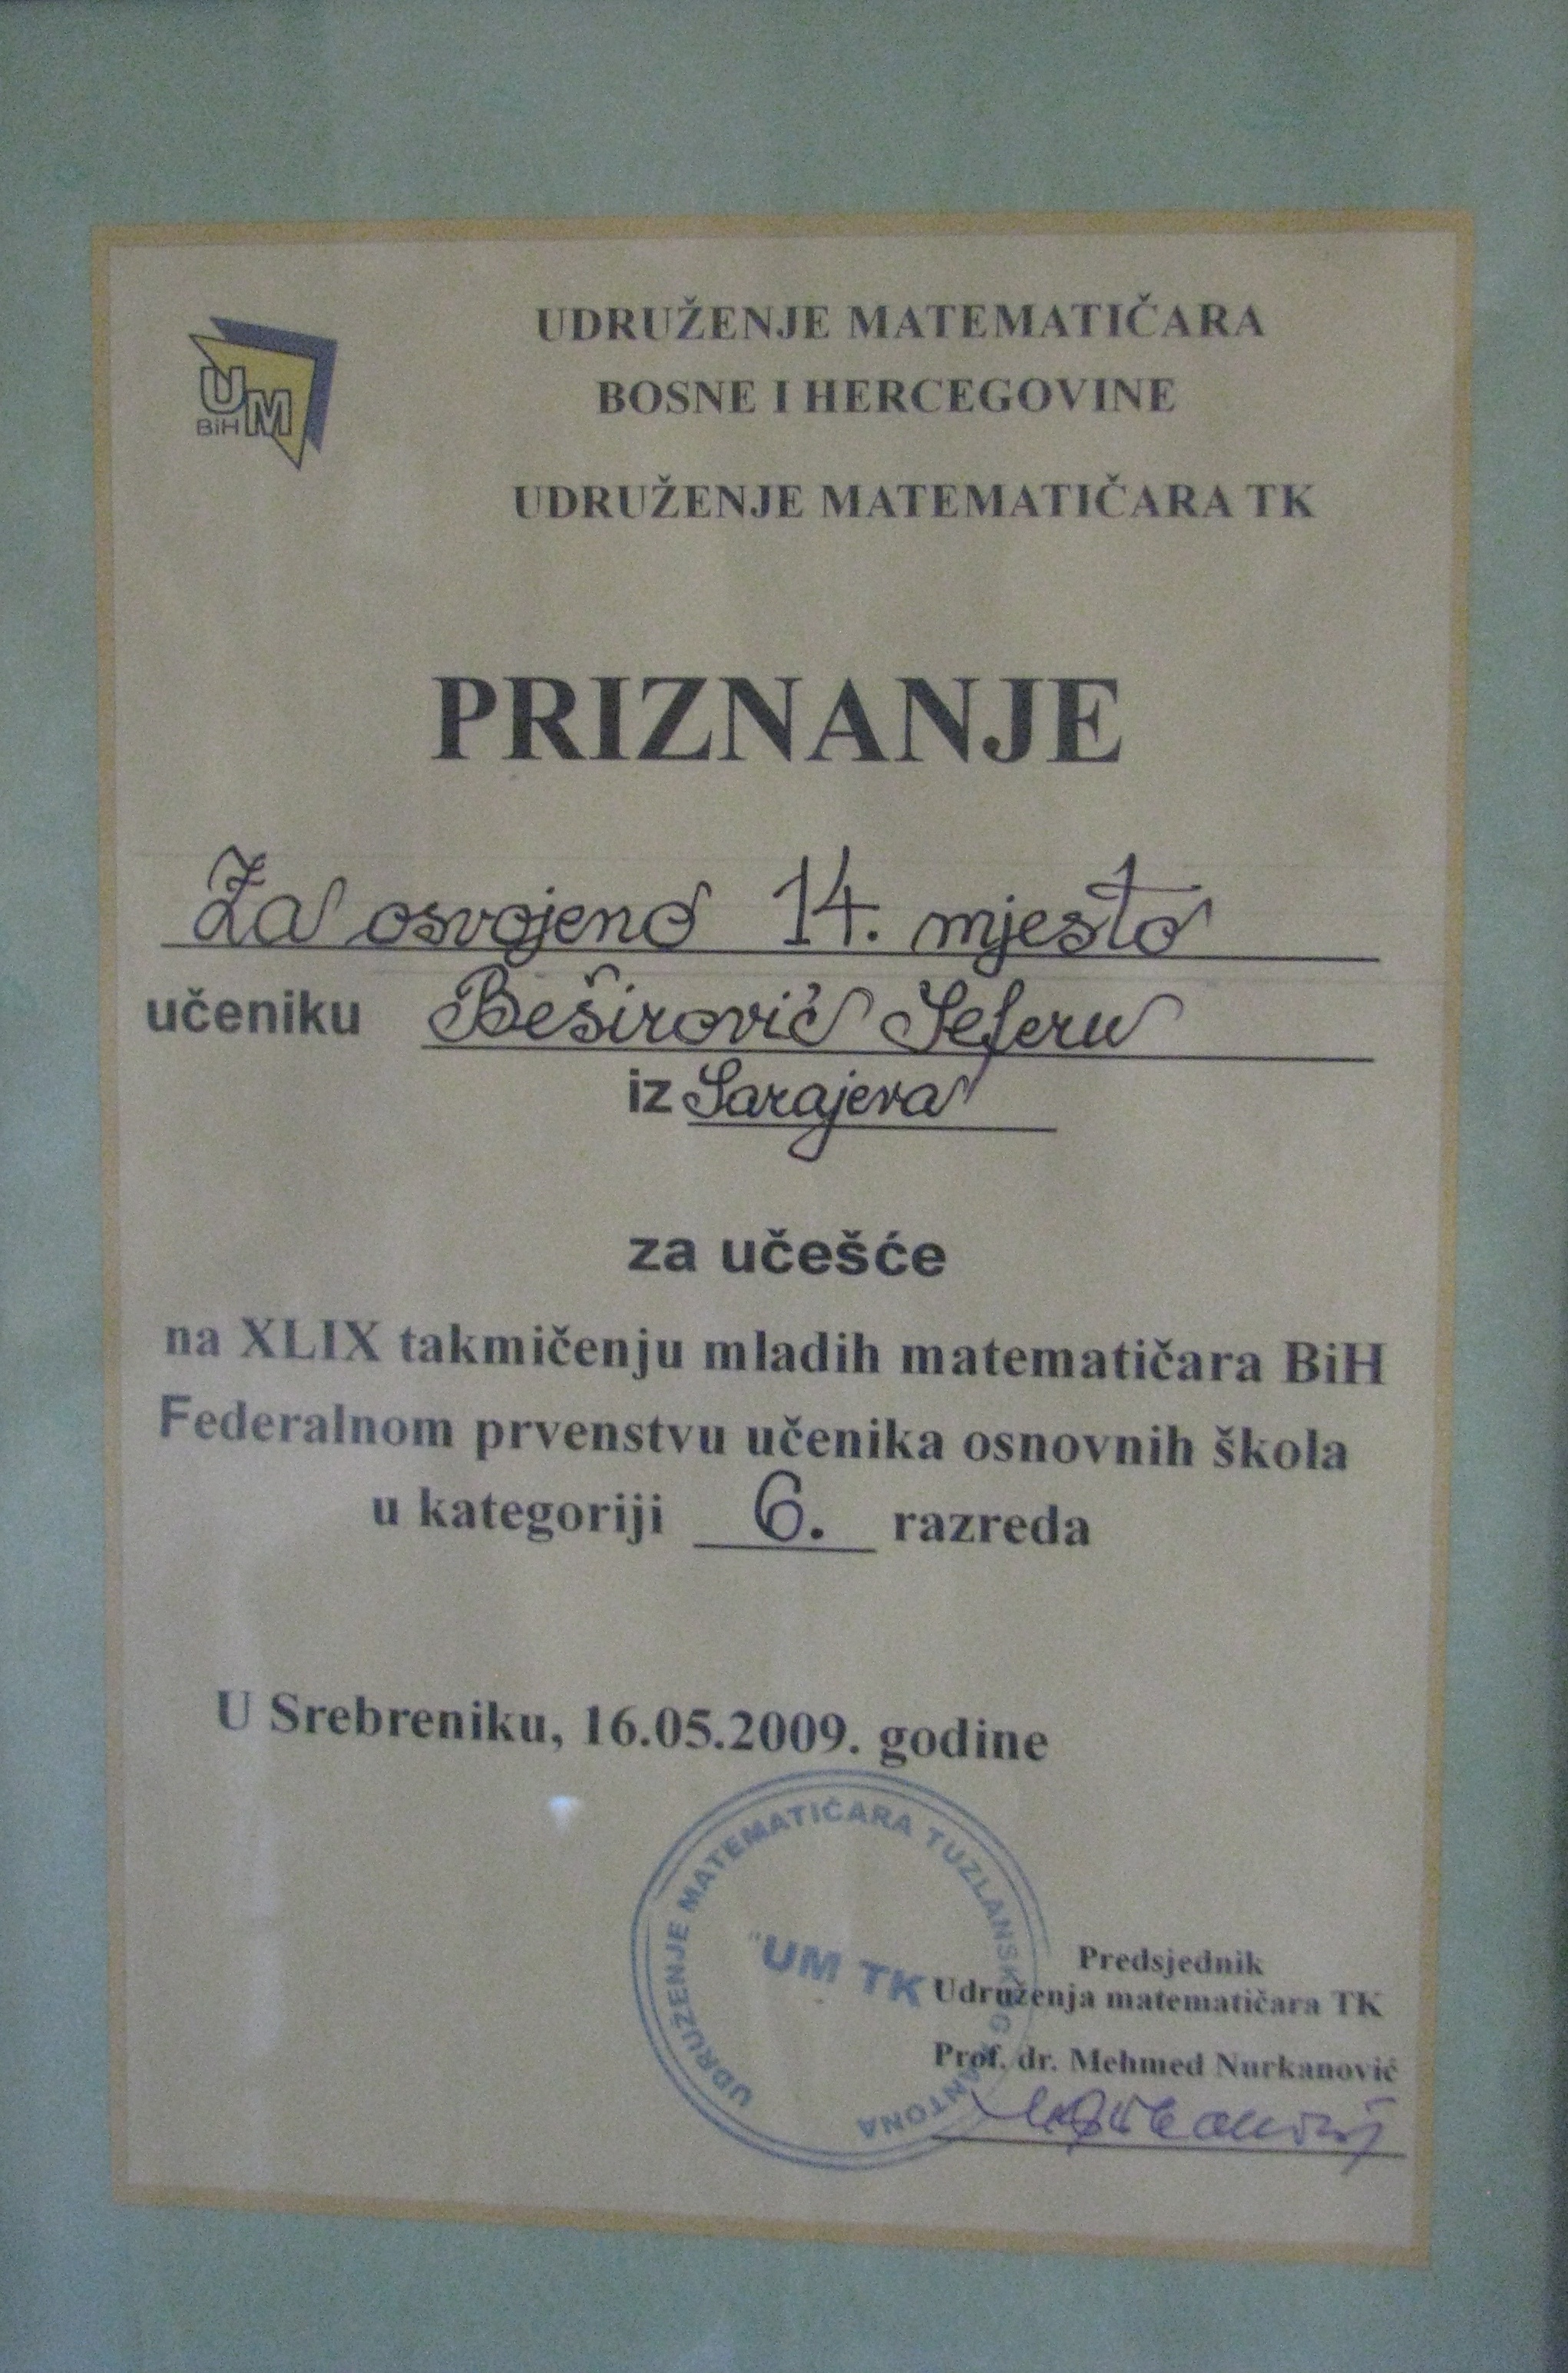 UM
BiH
UDRUŽENJE MATEMATIČARA
BOSNE I HERCEGOVINE
UDRUŽENJE MATEMATIČARA TK
PRIZNANJE
Za osvojeno 14. mjesto
učeniku Beširović Seferu
iz Sarajeva
za učešće
na XLIX takmičenju mladih matematičara BiH
Federalnom prvenstvu učenika osnovnih škola
u kategoriji 6. razreda
U Srebreniku, 16.05.2009. godine
UDRUŽENJE MATEMATIČARA TUZLANSKOG KANTONA
"UM TK
Predsjednik
Udruženja matematičara TK
Prof. dr. Mehmed Nurkanović